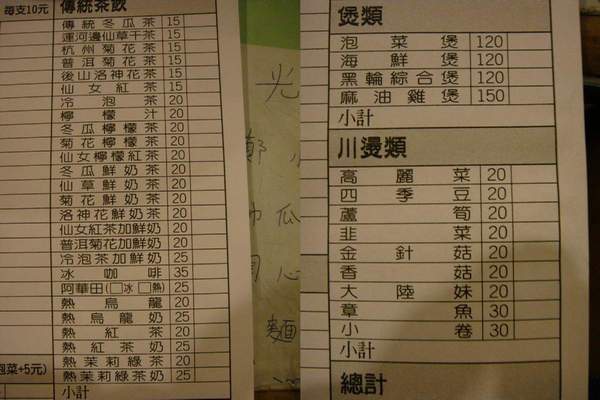 每支10元
傳統茶飲
傳統冬瓜茶 15
運河邊仙草干茶 15
杭州菊花茶 15
普洱菊花茶 15
後山洛神花茶 15
仙女紅茶 15
冷泡茶 20
檸檬汁 20
冬瓜檸檬茶 20
菊花檸檬茶 20
仙女檸檬紅茶 20
冬瓜鮮奶茶 20
仙草鮮奶茶 20
菊花鮮奶茶 20
洛神花鮮奶茶 20
仙女紅茶加鮮奶 20
普洱菊花加鮮奶 20
冷泡茶加鮮奶 25
冰咖啡 35
阿華田(□冰□熱) 25
熱烏龍 20
熱烏龍奶 25
熱紅茶 20
熱紅茶奶 25
熱茉莉綠茶 20
熱茉莉綠茶奶 25
小計
泡菜+5元)
光
瓜
心
麵
煲類
泡菜煲 120
海鮮煲 120
黑輪綜合煲 120
麻油雞煲 150
小計
川燙類
高麗菜 20
四季豆 20
蘆筍 20
韭菜 20
金針菇 20
香菇 20
大陸妹 20
章魚 30
小卷 30
小計
總計